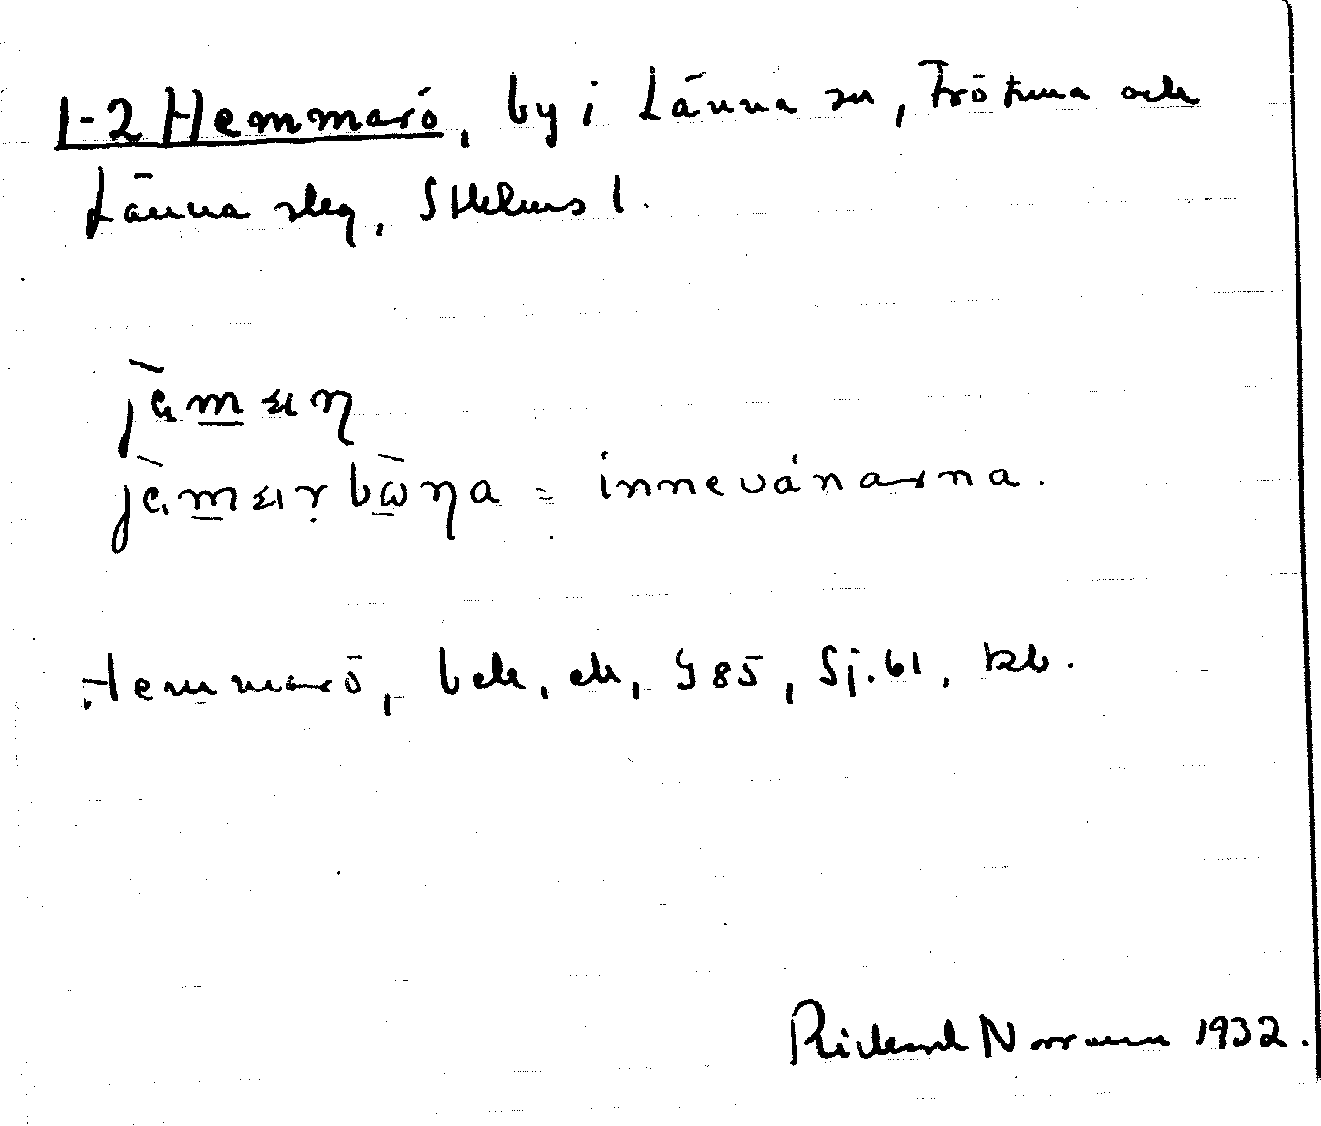 1-2 Hemmarö, by i Länna sn, Frötuna och
Länna skg, Sthlms l.
= innevånarna.
Hemmarö, bek, ek, G 85, Sj. 61, kb.
Rickard Norrman 1932.